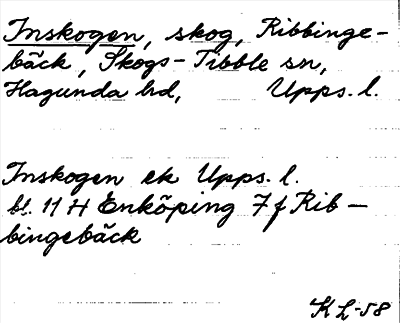 Inskogen, skog, Ribbinge-
bäck, Skogs-Tibble sn,
Hagunda hd, Upps. l.
Inskogen ek Upps. l.
bl. 11 H Enköping 7 f Rib-
bingebäck
KL-58